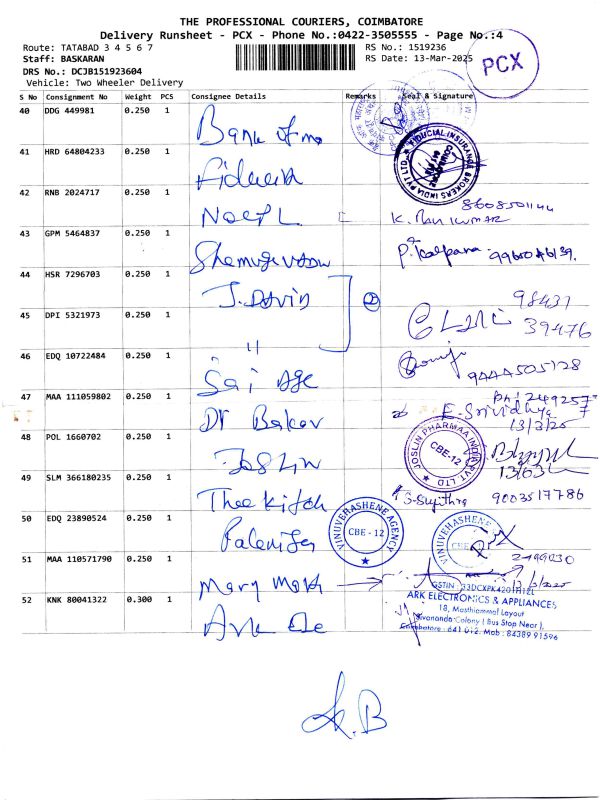 THE PROFESSIONAL COURIERS, COIMBATORE
Delivery Runsheet - PCX - Phone No.:0422-3505555 - Page No.:4
Route: TATABAD 3 4 5 6 7
RS No.: 1519236
Staff: BASKARAN
RS Date: 13-Mar-2025
DRS No.: DCJB151923604
Vehicle: Two Wheeler Delivery
PCX
S No Consignment No Weight PCS Consignee Details Remarks Seal & Signature
40 DDG 449981 0.250 1 Bank of
41 HRD 64804233 0.250 1
FIDUCIAL INSURANCE BROKERS INDIA PVT LTD
COIMBATORE
42 RNB 2024717 0.250 1
K. 8608501144
43 GPM 5464837 0.250 1
P. Kalpana
44 HSR 7296703 0.250 1 J. David
98437
39476
45 DPI 5321973 0.250 1 "
46 EDQ 10722484 0.250 1 Sai Age
9444505128
47 MAA 111059802 0.250 1 Dr Baker
E. Srividhya
13/3/25
48 POL 1660702 0.250 1 Joslin
JOSLIN PHARMAA INDIA PVT. LTD
CBE-12
49 SLM 366180235 0.250 1
S-Sujithra 9003517786
50 EDQ 23890524 0.250 1
VINUVERHASHENE AGENCY
CBE - 12
VINUVERHASHENE
51 MAA 110571790 0.250 1 Mary
52 KNK 80041322 0.300 1 Ark Ele
ARK ELECTRONICS & APPLIANCES
18, Masthiammal Layout
Sivananda Colony ( Bus Stop Near ),
Coimbatore - 641 012. Mob : 84389 91596
K.B